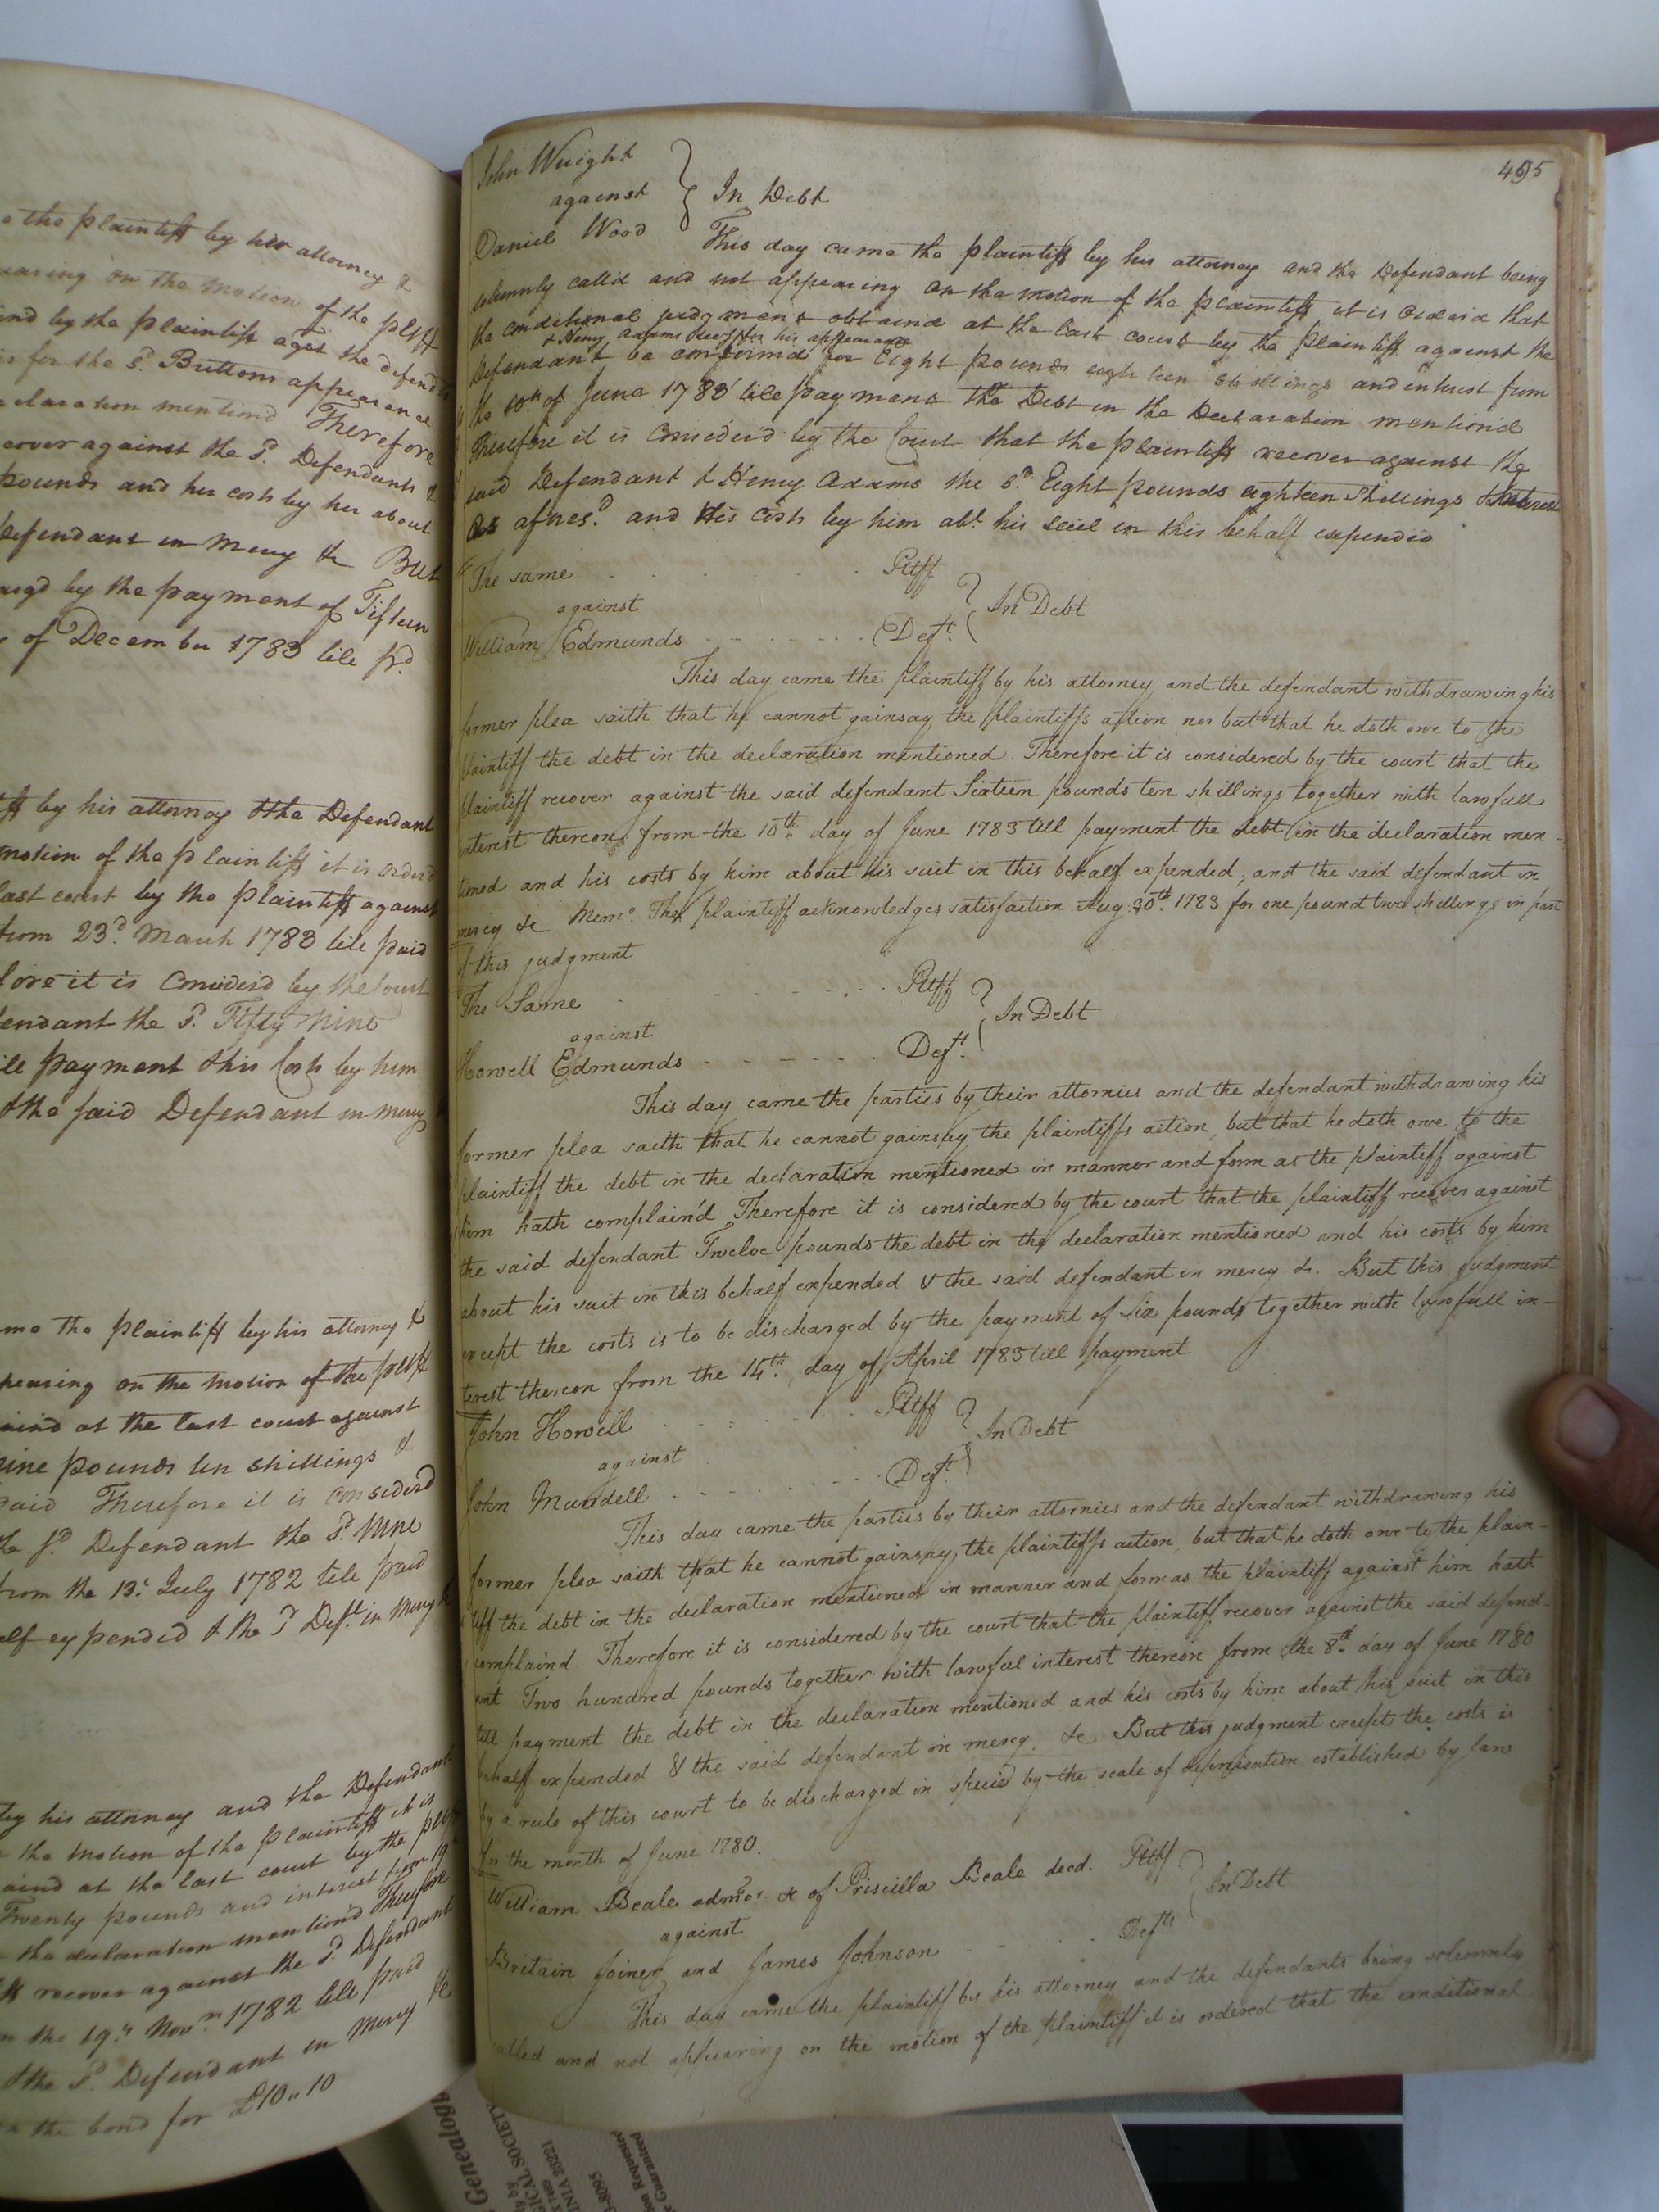 a the plaintiff by her attorney &
earing on the Motion of the pltff
ind by the plaintiff agst the defend
is for the s.d Buttons appearance
claration mentiond Therefore
cover against the s.d Defendants &
pounds and her costs by her about
defendant in mercy &c But
argd by the payment of Fifteen
y of December 1783 till pd.
ff by his attorney & the Defendant
motion of the plaintiff it is orderd
last court by the plaintiff against
from 23.d March 1783 till paid
fore it is Considerd by the Court
endant the s.d Fifty Nine
ill payment & his Costs by him
& the said Defendant in mercy
me the plaintiff by his attorney &
pearing on the motion of the pltff
aind at the last court against
nine pounds ten shillings &
paid Therefore it is considerd
the sd Defendant the sd Nine
from the 13.t July 1782 till paid
alf expended & the sd Deft. in mercy
by his attorney and the Defendant
n the motion of the plaintiff it is
aind at the last court by the pltff
Twenty pounds and interest from 19
the declaration mentiond Therefore
ff recover against the sd Defendant
m the 19th Novr 1782 till paid
& the sd Defendant in mercy &c
the bond for £10,,10
495
John Wright
against } In Debt
Daniel Wood
This day came the plaintiff by his attorney and the Defendant being
solemnly calld and not appearing on the motion of the plaintiff it is orderd that
the conditional judgment obtaind at the last court by the plaintiff against the
& Henry Adams for his appearance
Defendant be confirmd for Eight pounds eighteen Shillings and interest from
the 10th of June 1783 till payment the Debt in the Declaration mentiond
Therefore it is Considerd by the Court that the plaintiff recover against the
said Defendant & Henry Adams the sd. Eight pounds eighteen Shillings & Interest
as afores.d and His Costs by him abt. his suit in this behalf expended
The same . . . . Pltff
against } In Debt
William Edmunds . . . . Deft.
This day came the plaintiff by his attorney and the defendant withdrawing his
former plea saith that he cannot gainsay the plaintiffs action nor but that he doth owe to the
plaintiff the debt in the declaration mentioned. Therefore it is considered by the court that the
plaintiff recover against the said defendant Sixteen pounds ten shillings together with lawfull
interest thereon from the 10th day of June 1783 till payment the debt in the declaration men-
tioned and his costs by him about his suit in this behalf expended, and the said defendant in
mercy &c Memo. The plaintiff acknowledges satisfaction Aug. 30th. 1783 for one pound two shillings in part
of this judgment
The Same . . . . Pltff
against } In Debt
Howell Edmunds . . . . Deft.
This day came the parties by their attornies and the defendant withdrawing his
former plea saith that he cannot gainsay the plaintiffs action, but that he doth owe to the
plaintiff the debt in the declaration mentioned in manner and form as the plaintiff against
him hath complain'd Therefore it is considered by the court that the plaintiff recover against
the said defendant Twelve pounds the debt in the declaration mentioned and his costs by him
about his suit in this behalf expended & the said defendant in mercy &c. But this judgment
except the costs is to be discharged by the payment of six pounds together with lawfull in-
terest thereon from the 14th. day of April 1783 till payment
John Howell . . . . Pltff
against } In Debt
John Mundell . . . . Deft.
This day came the parties by their attornies and the defendant withdrawing his
former plea saith that he cannot gainsay the plaintiffs action, but that he doth owe to the plain-
tiff the debt in the declaration mentioned in manner and form as the plaintiff against him hath
complaind. Therefore it is considered by the court that the plaintiff recover against the said defend-
ant Two hundred pounds together with lawful interest thereon from the 8th. day of June 1780
till payment the debt in the declaration mentioned and his costs by him about his suit in this
behalf expended & the said defendant in mercy. &c But this judgment except the costs is
by a rule of this court to be discharged in specie by the scale of depreciation established by law
for the month of June 1780.
William Beale admor. &c of Priscilla Beale decd. Pltff
against } In Debt
Britain Joiner and James Johnson . . . Defts
This day came the plaintiff by his attorney and the defendants being solemnly
called and not appearing on the motion of the plaintiff it is ordered that the conditional
Genealog
ICAL SOCIETY
INIA 23221
3-8095
ion Requested
Guaranteed